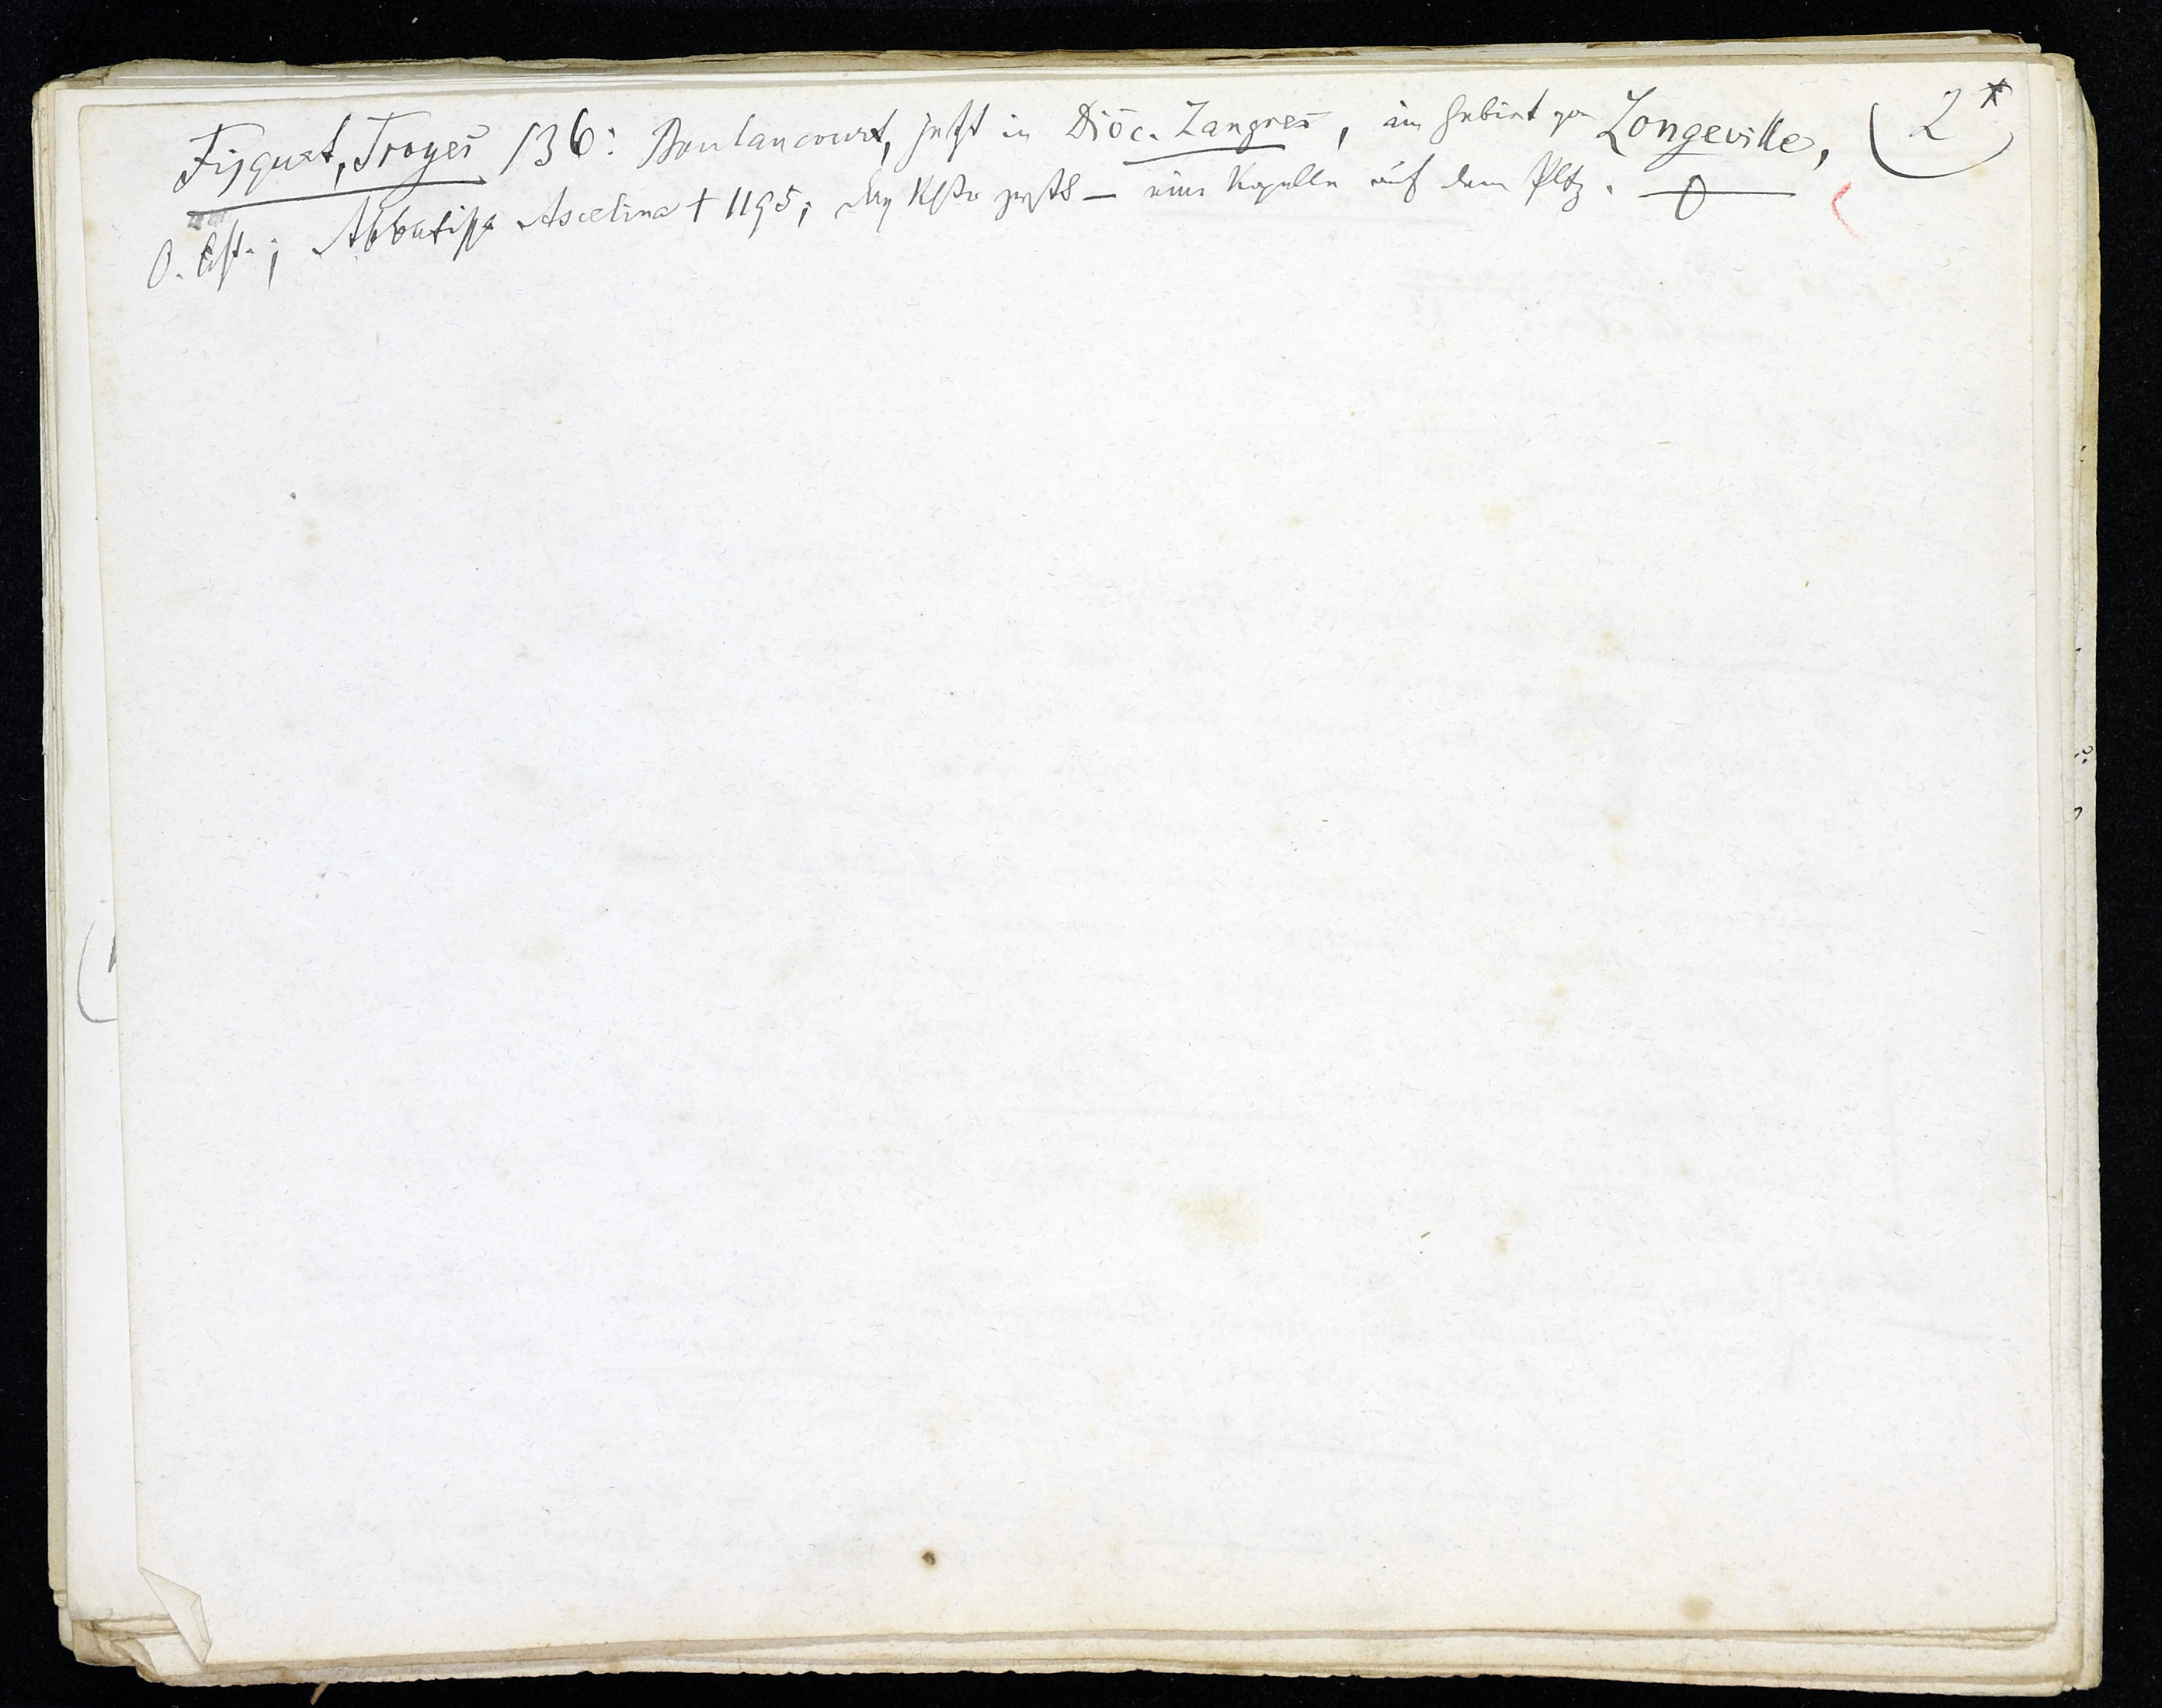 Fisquet, Troyes 136: Boulancourt, jetzt in Diöc. Langres, im Gebiet von Longeville, (2*)
O. Cist.; Abbatissa Ascelina † 1195; das Klstr zerst – eine Kapelle auf dem Pltz.